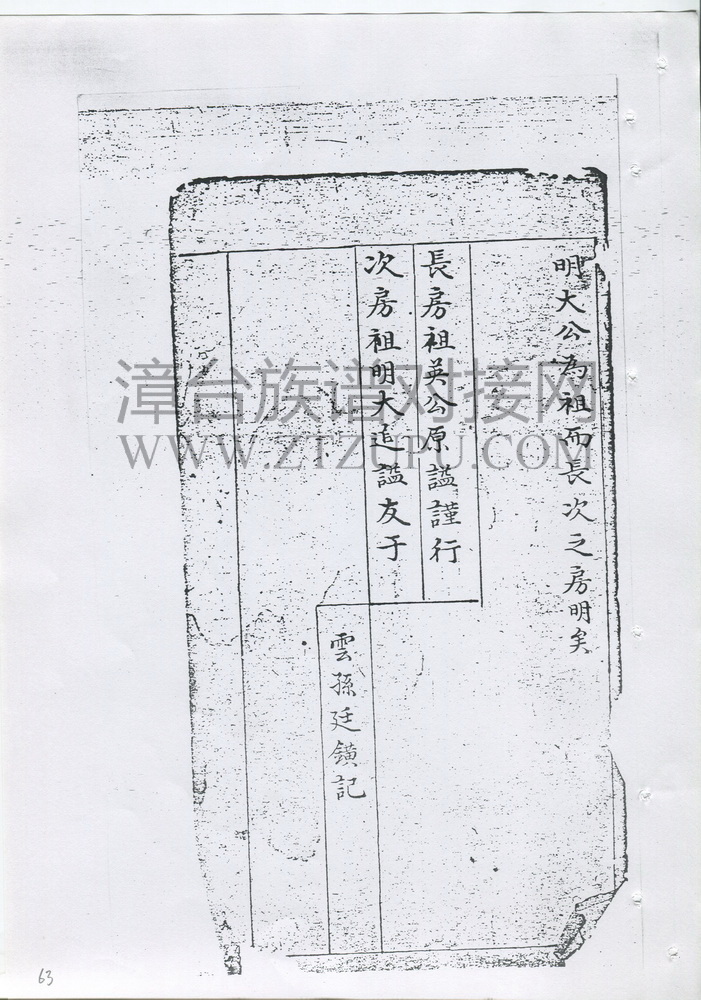 明大公為祖而長次之房明矣
長房祖英公原謚謹行
次房祖明大追謚友于
雲孫廷鐄記
漳台族谱对接网
WWW.ZTZUPU.COM
63